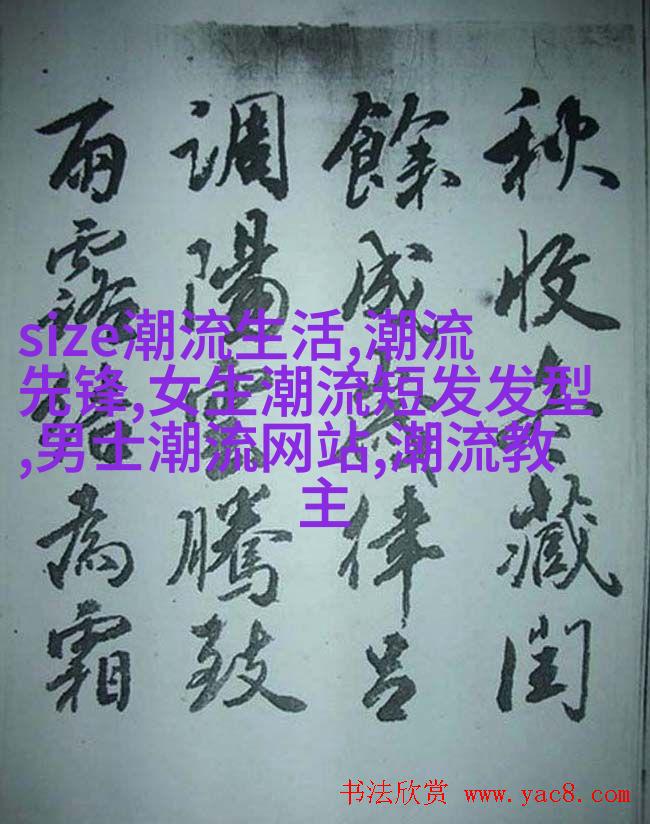 秋收冬藏閏
餘成歲律呂
調陽雲騰致
雨露結為霜
size潮流生活,潮流
先锋,女生潮流短发发型
,男士潮流网站,潮流教
主
书法欣赏 www.yac8.com